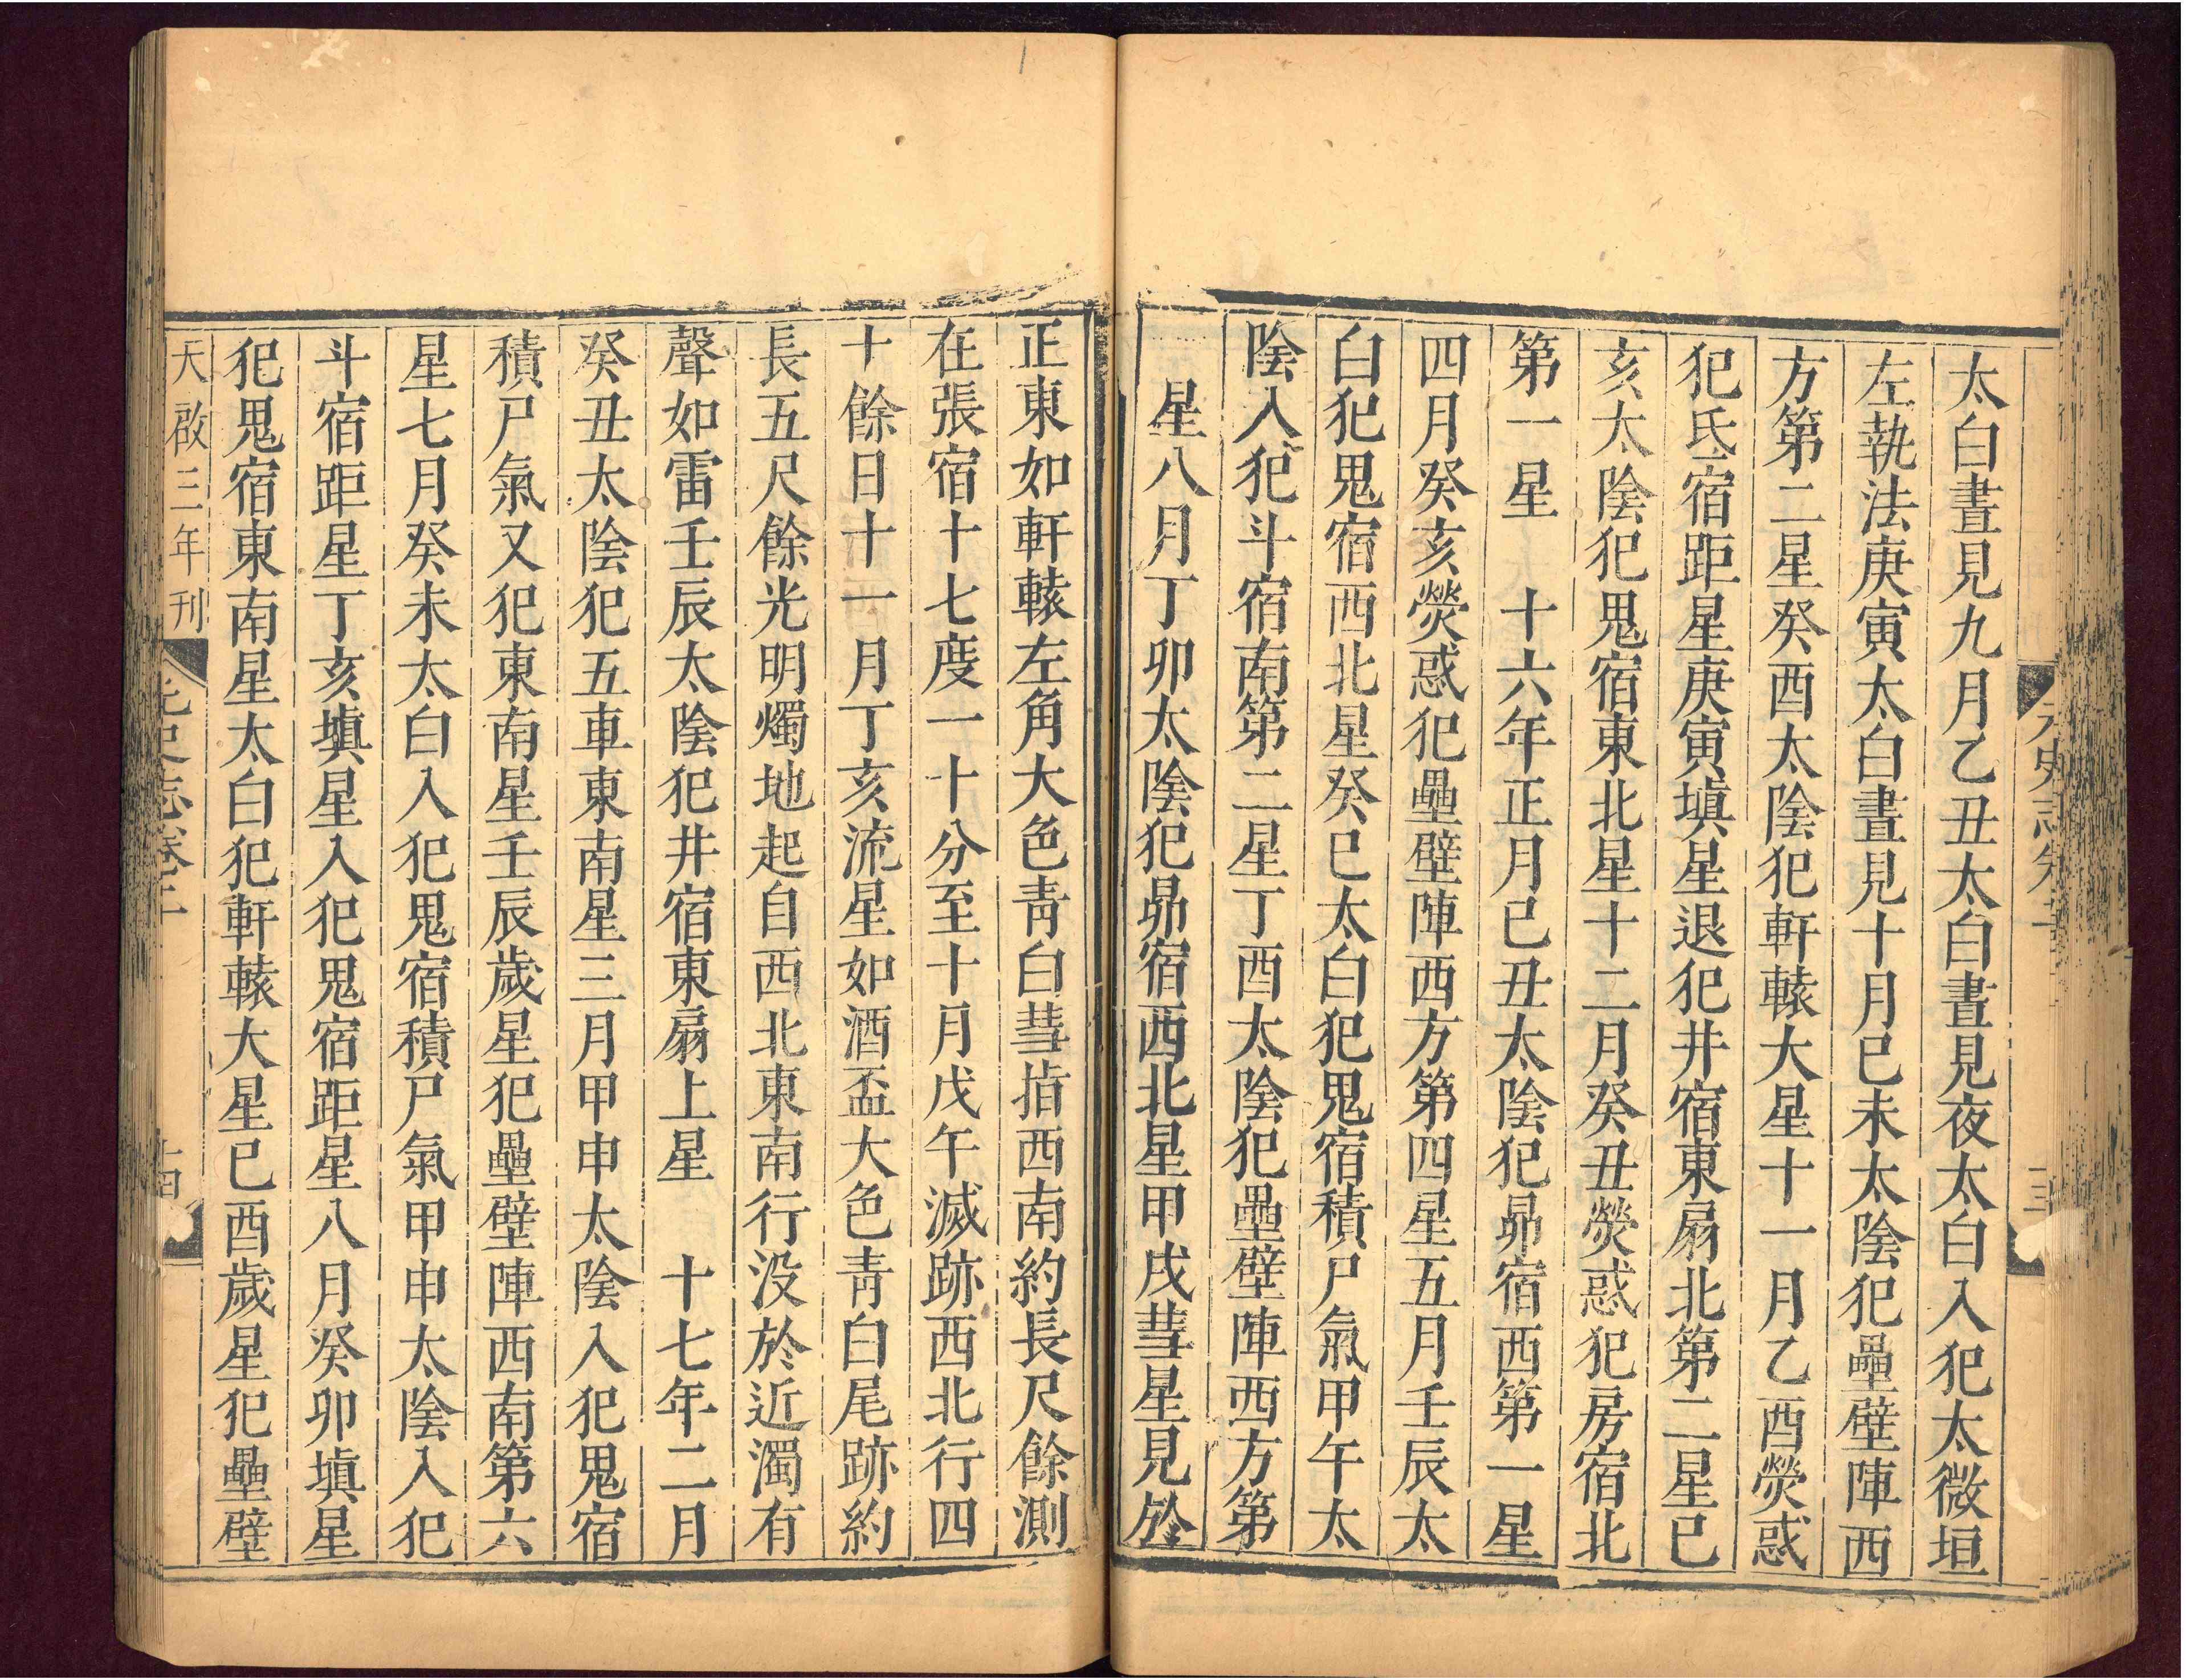 元史志卷三
太白晝見九月乙丑太白晝見夜太白入犯太微垣
左執法庚寅太白晝見十月己未太陰犯壘壁陣西
方第二星癸酉太陰犯軒轅大星十一月乙酉熒惑
犯氐宿距星庚寅塡星退犯井宿東扇北第二星己
亥太陰犯鬼宿東北星十二月癸丑熒惑犯房宿北
第一星　十六年正月己丑太陰犯昴宿西第一星
四月癸亥熒惑犯壘壁陣西方第四星五月壬辰太
白犯鬼宿西北星癸巳太白犯鬼宿積尸氣甲午太
陰入犯斗宿南第二星丁酉太陰犯壘壁陣西方第
星八月丁卯太陰犯昴宿西北星甲戌彗星見於
正東如軒轅左角大色靑白彗指西南約長尺餘測
在張宿十七度一十分至十月戊午滅跡西北行四
十餘日十一月丁亥流星如酒盃大色靑白尾跡約
長五尺餘光明燭地起自西北東南行没於近濁有
聲如雷壬辰太陰犯井宿東扇上星　十七年二月
癸丑太陰犯五車東南星三月甲申太陰入犯鬼宿
積尸氣又犯東南星壬辰歲星犯壘壁陣西南第六
星七月癸未太白入犯鬼宿積尸氣甲申太陰入犯
斗宿距星丁亥塡星入犯鬼宿距星八月癸卯塡星
犯鬼宿東南星太白犯軒轅大星己酉歲星犯壘壁
天啟三年刊　元史志卷三　十四